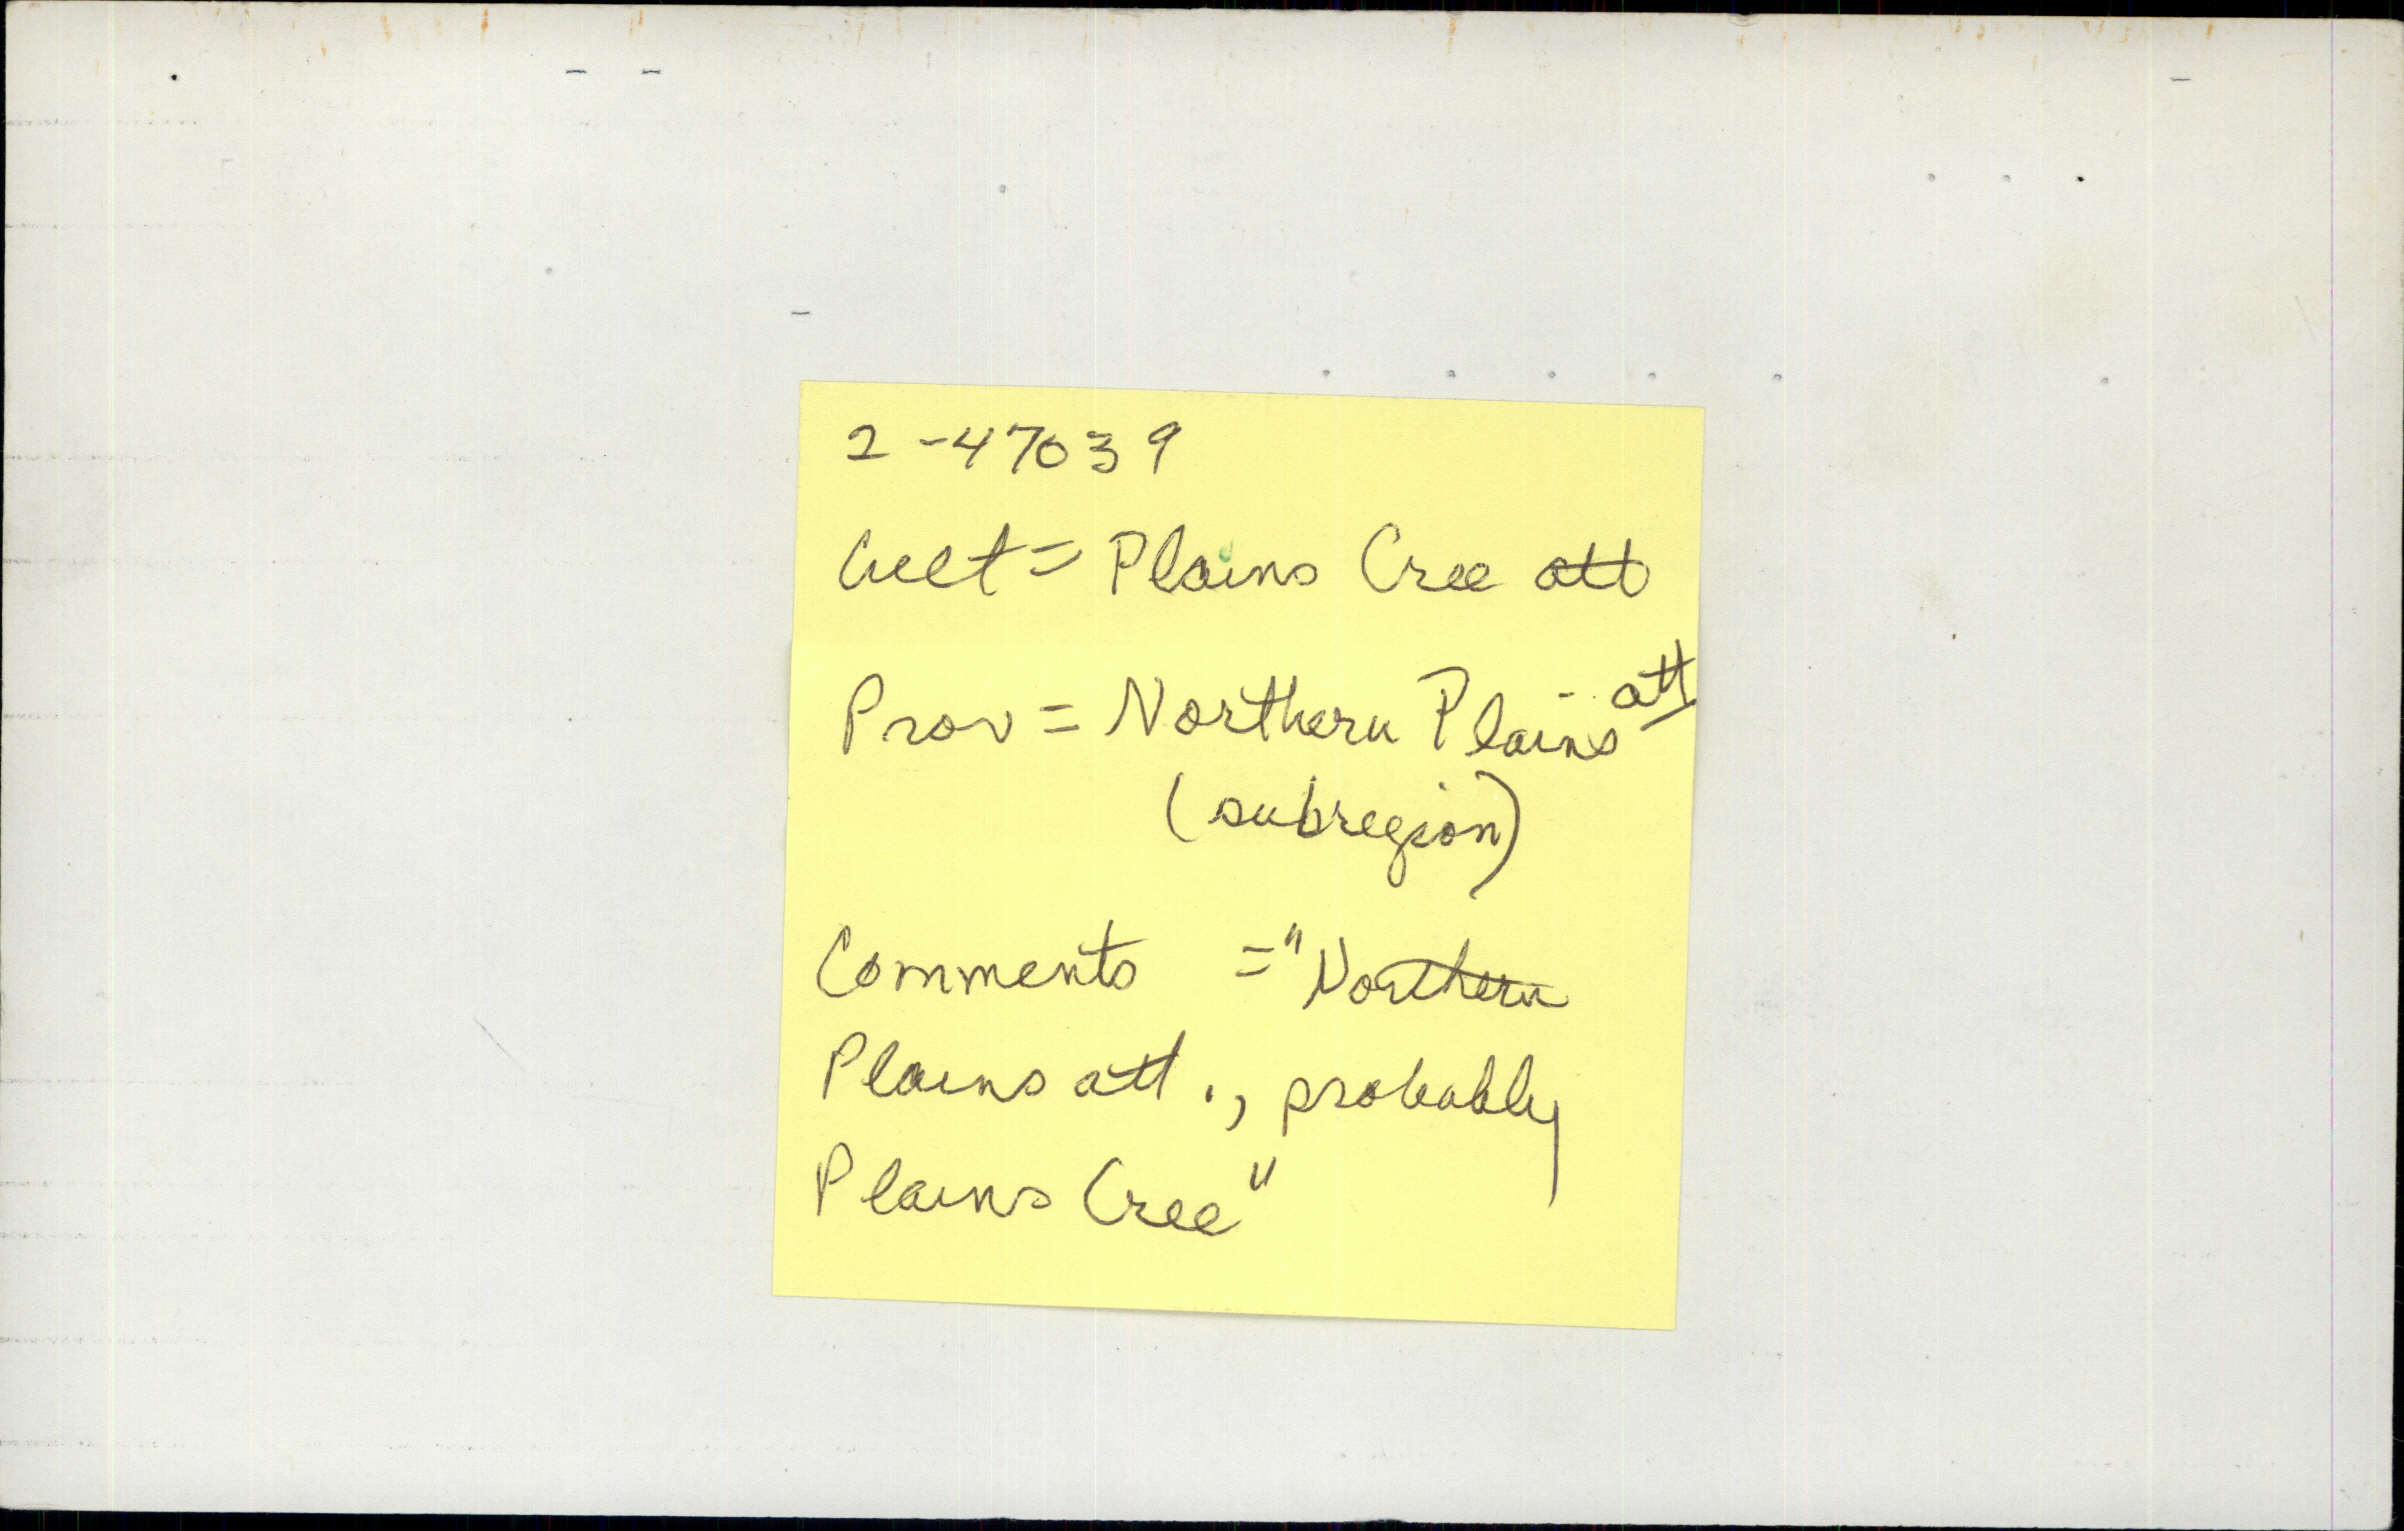 2-47039
Cult = Plains Cree att
Prov = Northern Plains att
(subregion)
Comments = "Northern
Plains att., probably
Plains Cree"